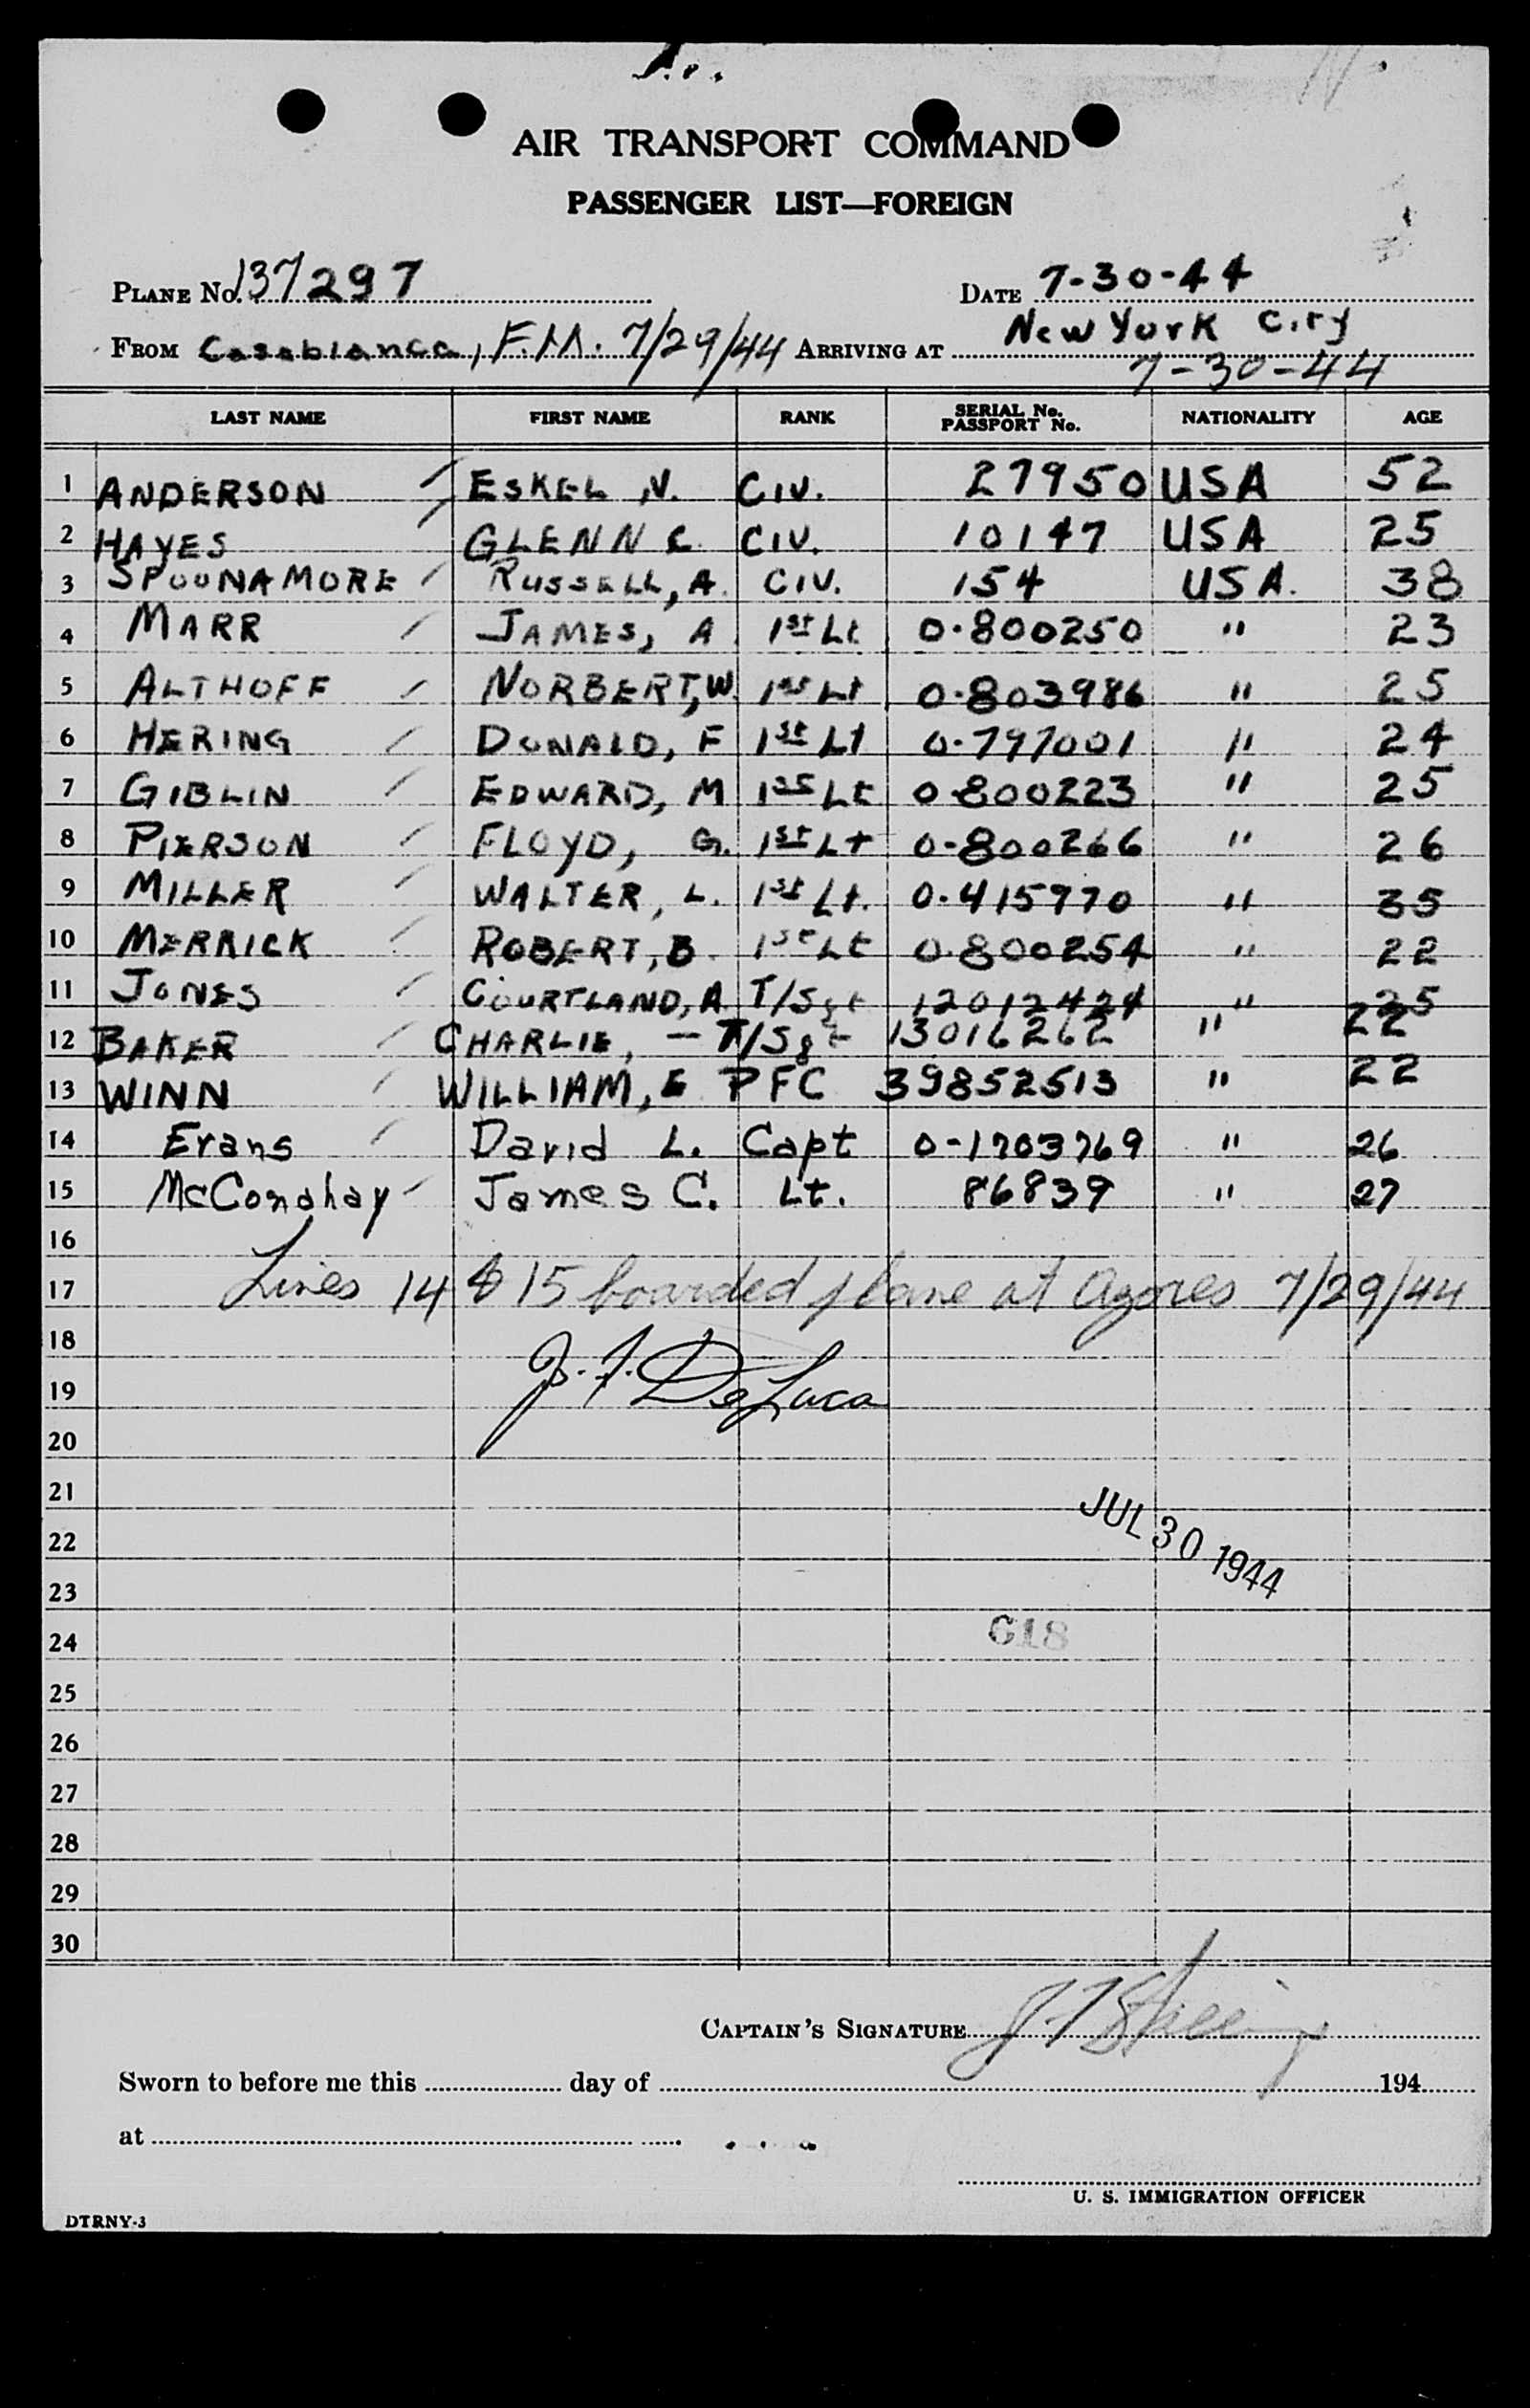 AIR TRANSPORT COMMAND
PASSENGER LIST—FOREIGN
PLANE No. 137297 DATE 7-30-44
FROM Casablanca, F.M. 7/29/44 ARRIVING AT New York City
7-30-44
LAST NAME FIRST NAME RANK SERIAL No. PASSPORT No. NATIONALITY AGE
1 ANDERSON ESKEL, V. CIV. 27950 USA 52
2 HAYES GLENN C. CIV. 10147 USA 25
3 SPOONAMORE RUSSELL, A. CIV. 154 USA. 38
4 MARR JAMES, A. 1st Lt 0-800250 " 23
5 ALTHOFF NORBERT, W. 1st Lt 0-803986 " 25
6 HERING DONALD, F 1st Lt 0-797001 " 24
7 GIBLIN EDWARD, M 1st Lt 0-800223 " 25
8 PIERSON FLOYD, G. 1st Lt 0-800266 " 26
9 MILLER WALTER, L. 1st Lt. 0-415970 " 35
10 MERRICK ROBERT, B. 1st Lt 0-800254 " 22
11 JONES COURTLAND, A. T/Sgt 12012424 " 25
12 BAKER CHARLIE, — T/Sgt 13016262 " 22
13 WINN WILLIAM, E PFC 39852513 " 22
14 Evans David L. Capt 0-1703769 " 26
15 McConahay James C. Lt. 86839 " 27
16
17 Lines 14 & 15 boarded plane at Azores 7/29/44
18
19 J. F. DeLuca
20
21
22 JUL 30 1944
23
24 G18
25
26
27
28
29
30
CAPTAIN'S SIGNATURE
Sworn to before me this day of 194
at
U. S. IMMIGRATION OFFICER
DTRNY-3